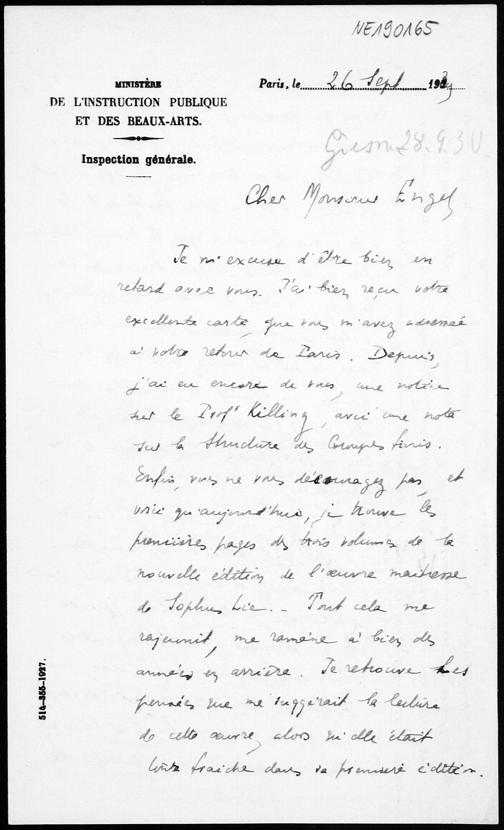 NE190165
MINISTÈRE
DE L'INSTRUCTION PUBLIQUE
ET DES BEAUX-ARTS.
Inspection générale.
Paris, le 26 Sept 19
28.9.30.
Cher Monsieur Engel,
Je m'excuse d'être bien en
retard avec vous. J'ai bien reçu votre
excellente carte, que vous m'avez adressée
à votre retour de Paris. Depuis,
j'ai eu encore de vous, une notice
sur le Profr Killing, avec une note
sur la structure des Groupes finis.
Enfin, vous ne vous découragez pas, et
voici qu'aujourd'hui, je trouve les
premières pages des trois volumes de la
nouvelle édition de l'œuvre maitresse
de Sophus Lie. _ Tout cela me
rajeunit, me ramène à bien des
années en arrière. Je retrouve les
pensées que me suggérait la lecture
de cette œuvre, alors qu'elle était
toute fraiche dans sa première édition.
514-355-1927.